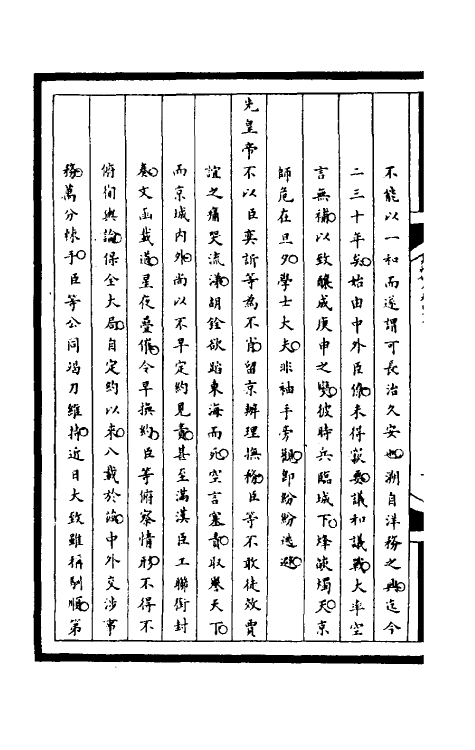 不能以一和而遂謂可長治久安也溯自洋務之興迄今
二三十年矣始由中外臣僚未得窾要議和議戰大率空
言無補以致釀成庚申之變彼時兵臨城下烽燄燭天京
師危在旦夕學士大夫非袖手旁觀卽紛紛逃避
先皇帝不以臣奕訢等為不肖留京辦理撫務臣等不敢徒效賈
誼之痛哭流涕胡銓欲蹈東海而死空言塞責取譽天下
而京城內外尚以不早定約見責甚至滿漢臣工聯銜封
奏文函載道星夜疊催令早撫約臣等俯察情形不得不
俯徇輿論保全大局自定約以來八載於茲中外交涉事
務萬分棘手臣等公同竭力維持近日大致雖稱馴順第